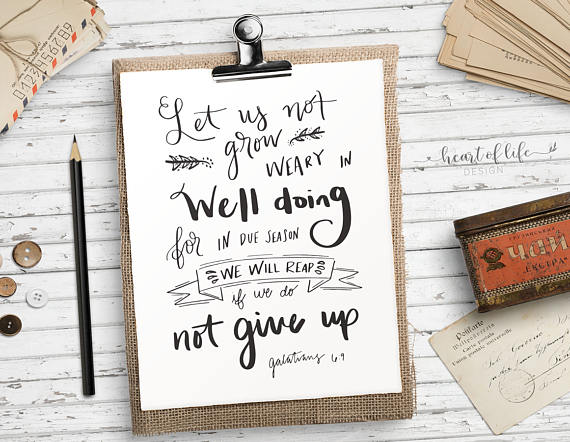 Let us not
grow
WEARY IN
Well doing
for IN DUE SEASON
WE WILL REAP
if we do
not give up
galatians 6:9
heart of life
DESIGN
ЧАЙ
Postkarte
0123456789